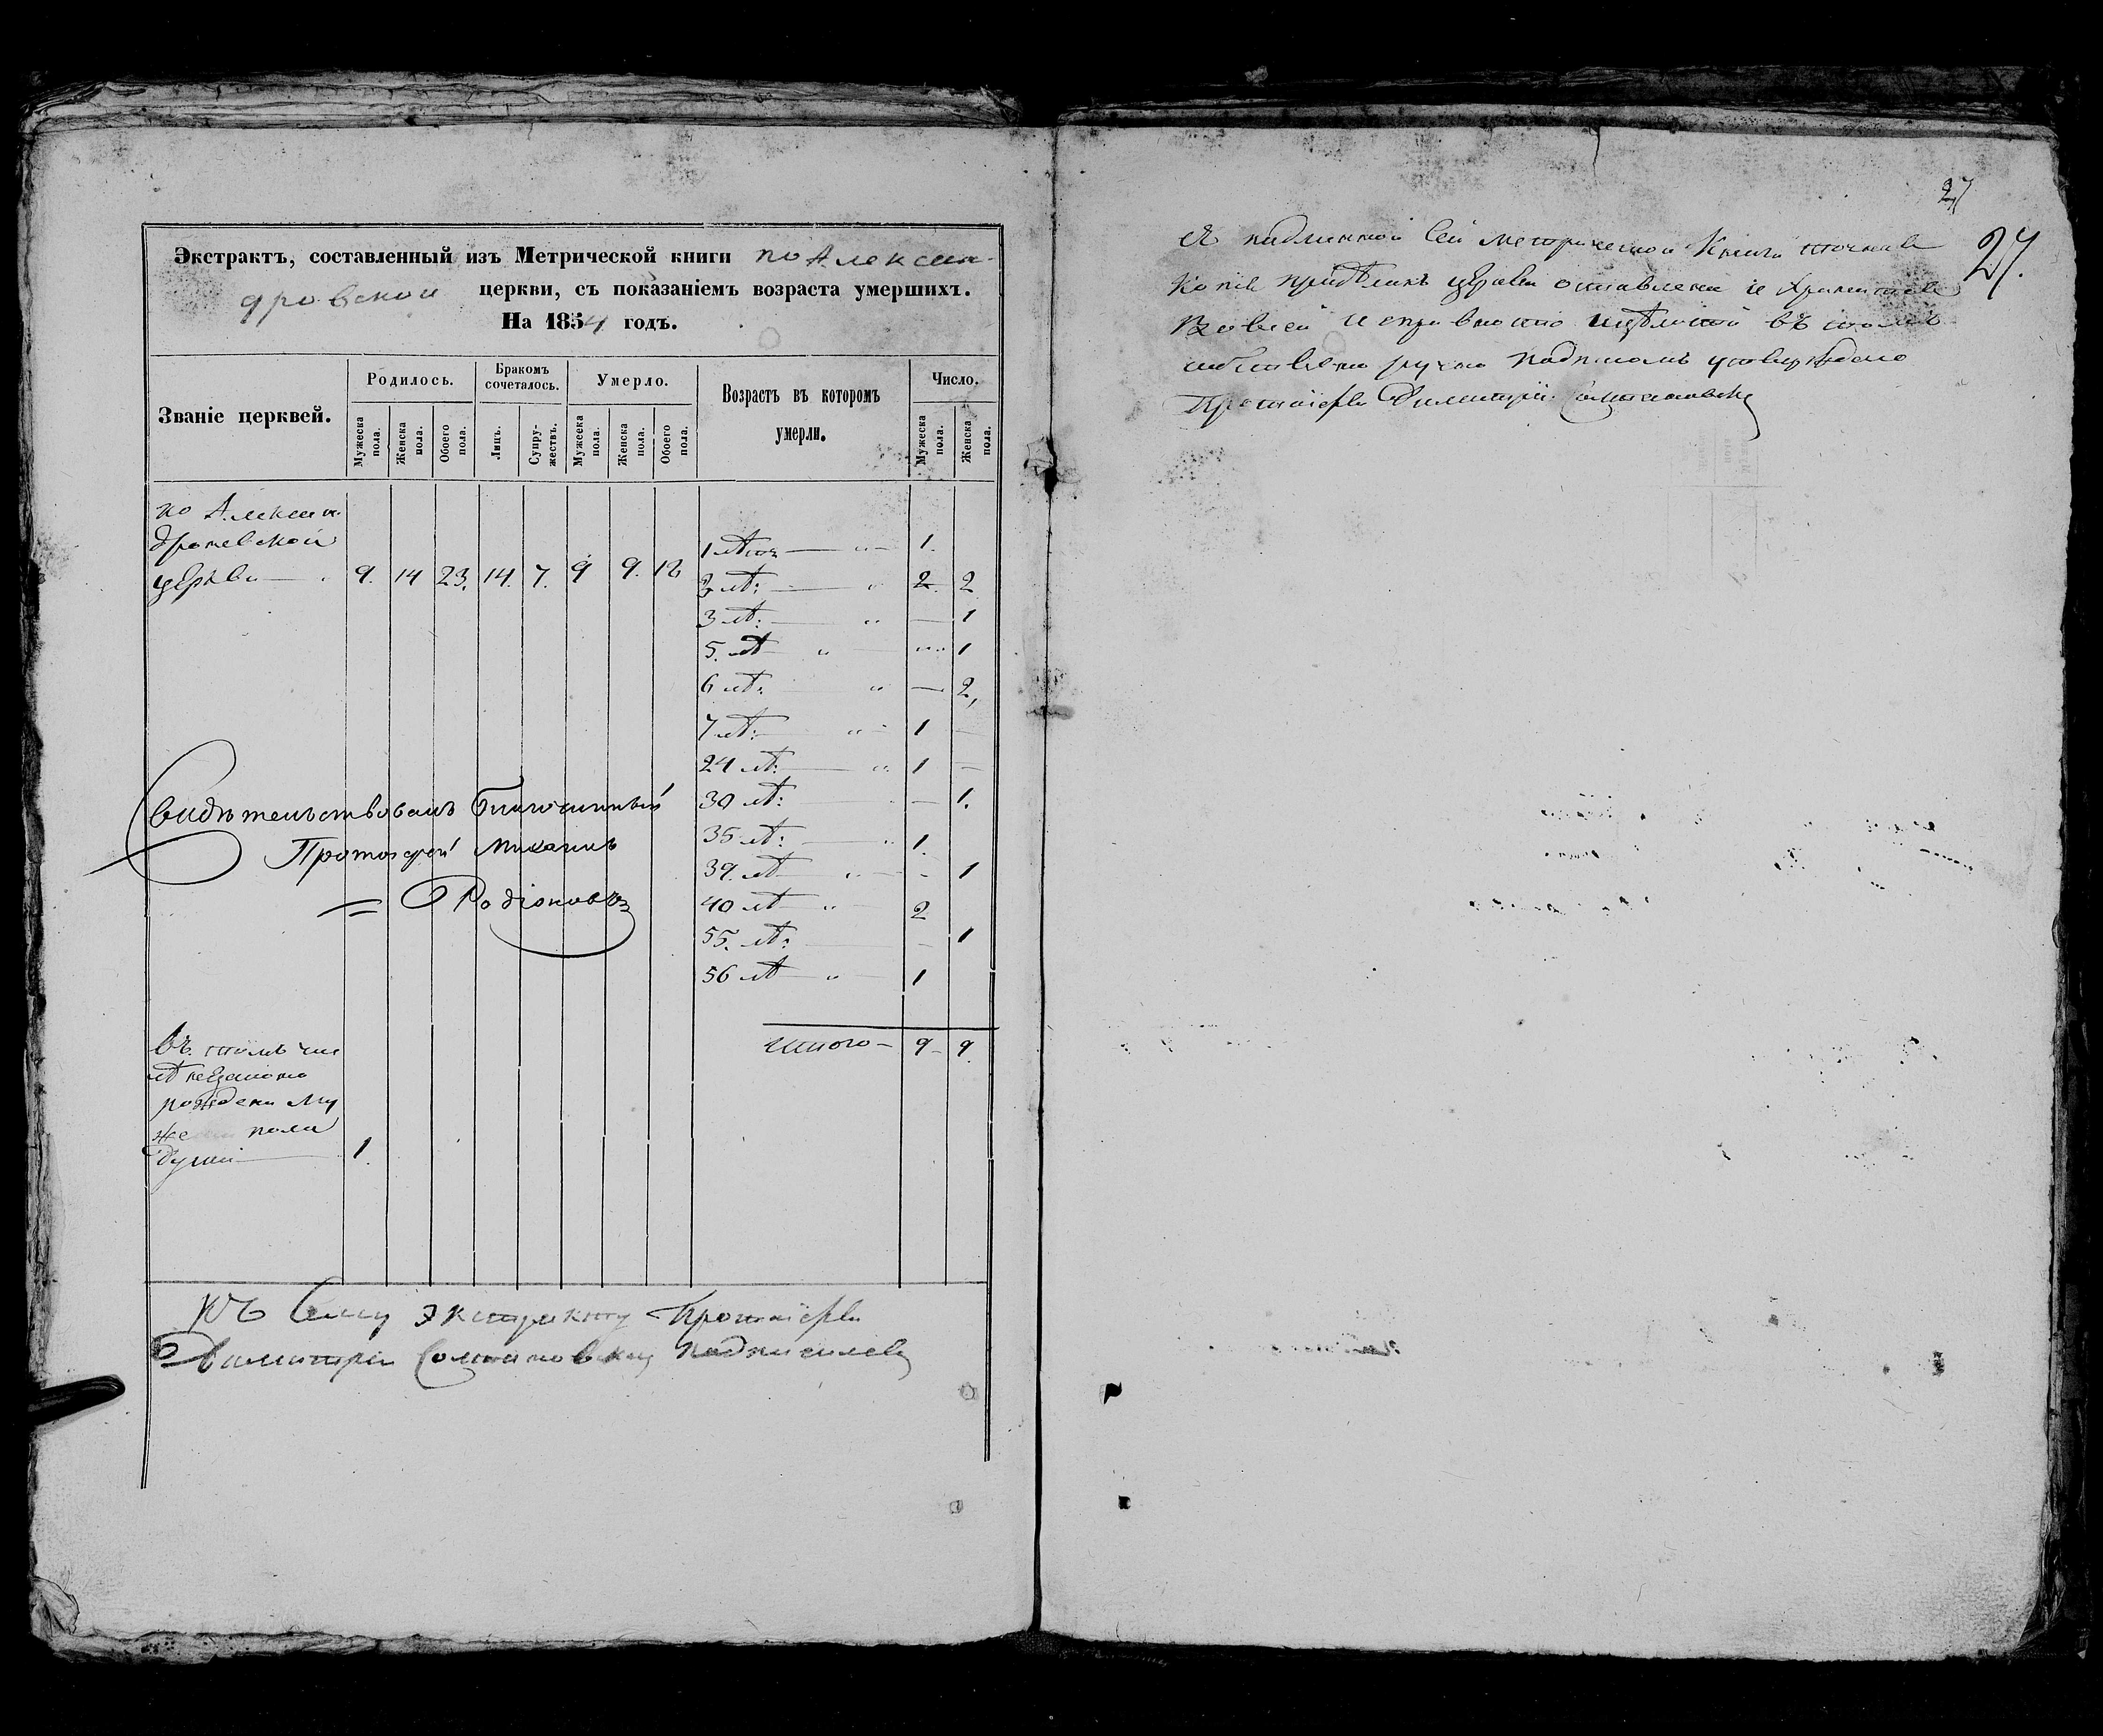 Экстрактъ, составленный изъ Метрической книги по Алексан-
дровской церкви, съ показаніемъ возраста умершихъ.
На 1854 годъ.
Званіе церквей.
Родилось.
Бракомъ сочеталось.
Умерло.
Возрастъ въ которомъ умерли.
Число.
Мужеска пола.
Женска пола.
Обоего пола.
Лицъ.
Супружествъ.
Мужеска пола.
Женска пола.
Обоего пола.
Мужеска пола.
Женска пола.
по Алексан
церкви 9. 14 23. 14. 7. 9 9. 18
1 1.
2 лѣ: 2. 2
3 лѣ: — 1
5. лѣ 1
6 лѣ: — 2,
7 лѣ: 1 —
24 лѣ: 1 —
30 лѣ: — 1.
35 лѣ: 1.
39. лѣ - 1
40 лѣ 2
55. лѣ: - 1
56 лѣ 1
Итого — 9 - 9
Свидѣтельствовалъ Благочинный
Протоіерей Михаилъ
= Родіоновъ
Въ томъ чис
лѣ незаконо
рождены Му
же пола
души 1.
Къ сему экстракту Протоіерей
Димитрій подписался
27
27.
подлинной сей метрической Книги точная
Копія церкви оставлена и хранится
во всей исправности въ томъ
подписомъ утверждаю
Протоіерей Димитрій